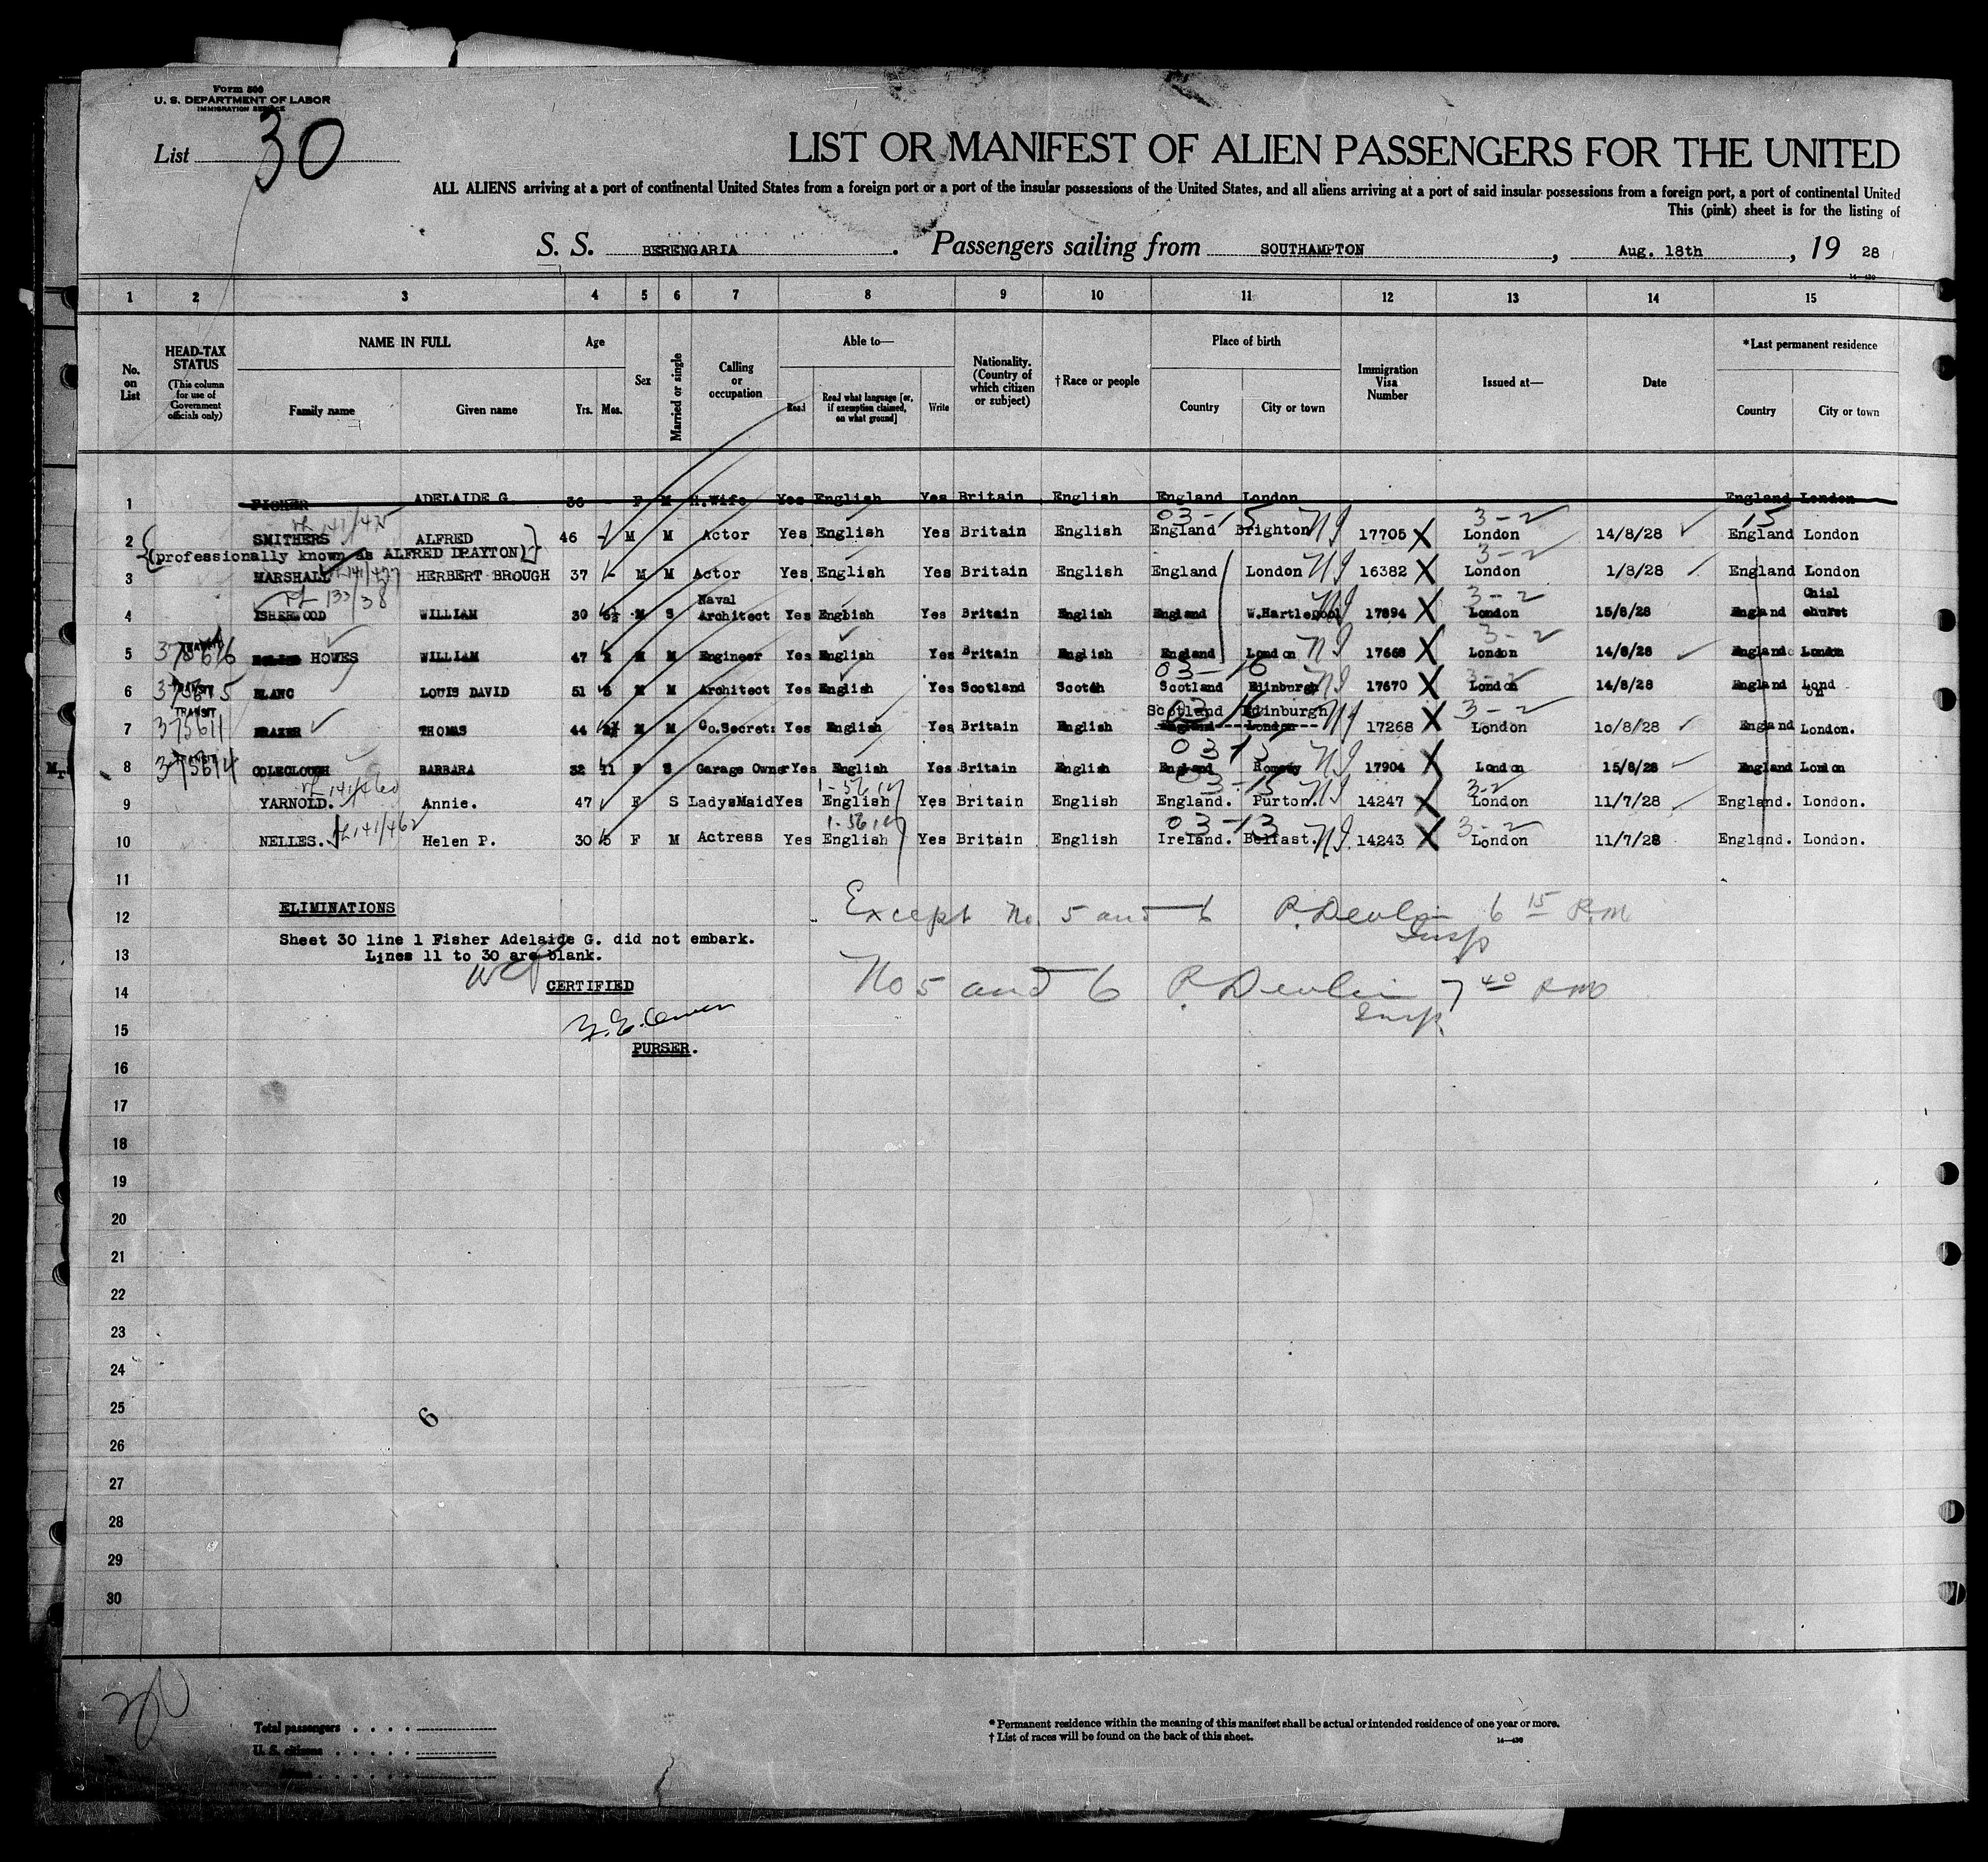 Form 500
U. S. DEPARTMENT OF LABOR
IMMIGRATION SERVICE
List 30
LIST OR MANIFEST OF ALIEN PASSENGERS FOR THE UNITED
ALL ALIENS arriving at a port of continental United States from a foreign port or a port of the insular possessions of the United States, and all aliens arriving at a port of said insular possessions from a foreign port, a port of continental United
This (pink) sheet is for the listing of
S. S. BERENGARIA. Passengers sailing from SOUTHAMPTON, Aug. 18th, 19 28
1 2 3 4 5 6 7 8 9 10 11 12 13 14 15
No. on List
HEAD-TAX STATUS (This column for use of Government officials only)
NAME IN FULL Family name Given name
Age Yrs. Mos.
Sex
Married or single
Calling or occupation
Able to— Read Read what language [or, if exemption claimed, on what ground] Write
Nationality. (Country of which citizen or subject)
†Race or people
Place of birth Country City or town
Immigration Visa Number
Issued at—
Date
*Last permanent residence Country City or town
1 FISHER ADELAIDE G. 36 - F M H.Wife Yes English Yes Britain English England London England London
2 SMITHERS ALFRED 46 - M M Actor Yes English Yes Britain English England Brighton 17705 London 14/8/28 England London
(professionally known as ALFRED DRAYTON)
3 MARSHALL HERBERT BROUGH 37 - M M Actor Yes English Yes Britain English England London 16382 London 1/8/28 England London
4 ISHERWOOD WILLIAM 30 M S Naval Architect Yes English Yes Britain English England W.Hartlepool 17894 London 15/8/28 England Chislehurst
5 HOWES WILLIAM 47 M M Engineer Yes English Yes Britain English England London 17668 London 14/8/28 England London
6 BLANC LOUIS DAVID 51 5 M M Architect Yes English Yes Scotland Scotch Scotland Edinburgh 17670 London 14/8/28 England London
TRANSIT
Scotland Edinburgh
7 FRAZER THOMAS 44 M M Co.Secret: Yes English Yes Britain English England London 17268 London 10/8/28 England London.
8 COLECLOUGH BARBARA 32 11 F S Garage Owner Yes English Yes Britain English England Romsey 17904 London 15/8/28 England London
9 YARNOLD. Annie. 47 F S LadysMaid Yes English Yes Britain English England. Purton. 14247 London 11/7/28 England. London.
10 NELLES. Helen P. 30 5 F M Actress Yes English Yes Britain English Ireland. Belfast. 14243 London 11/7/28 England. London.
11
ELIMINATIONS
12 Except No. 5 and 6 P. Devlin Insp 6 15 P.M
Sheet 30 line 1 Fisher Adelaide G. did not embark.
13 Lines 11 to 30 are blank.
14 CERTIFIED No 5 and 6 P. Devlin Insp. 7 40 PM
15
PURSER.
16
17
18
19
20
21
22
23
24
25
6
26
27
28
29
30
Total passengers
U. S. citizens
*Permanent residence within the meaning of this manifest shall be actual or intended residence of one year or more.
†List of races will be found on the back of this sheet.